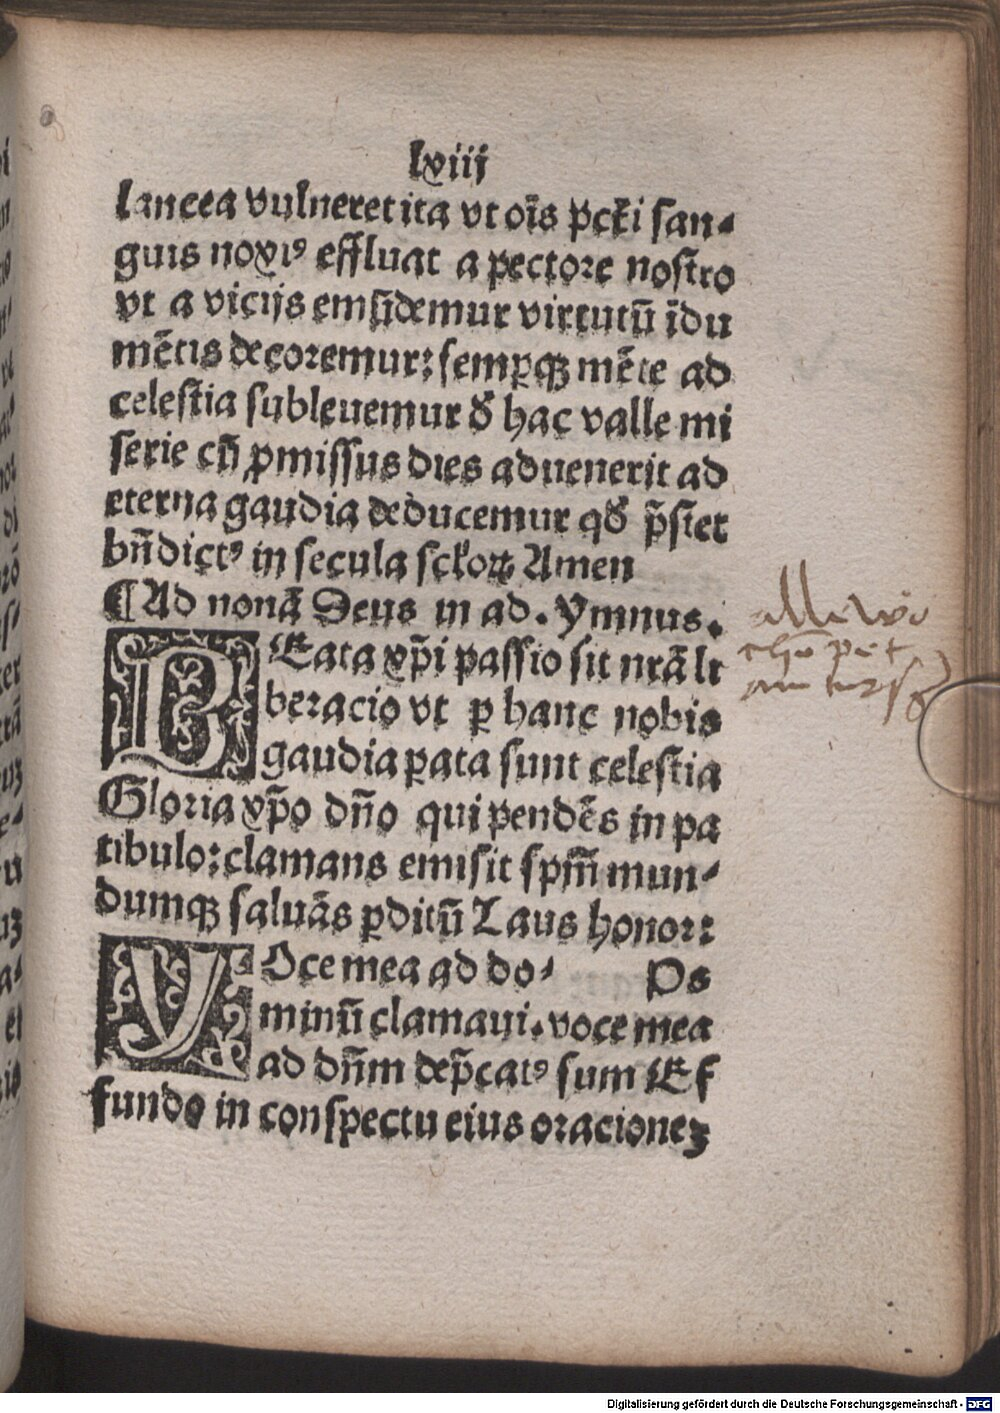 lxiij
lancea vulneret ita vt oīs pct̄i san-
guis noxiꝰ effluat a pectore nostro
vt a vicijs emūdemur virtutū īdu
mētis decoremur: semꝑqꝫ mēte ad
celestia subleuemur ⁊ hac valle mi
serie cū ꝓmissus dies aduenerit ad
eterna gaudia deducemur qđ p̄stet
bn̄dictꝰ in secula sc̄loꝝ Amen
¶ Ad nonā Deus in ad. Ymnus.
BEata xp̄i passio sit nrā li
beracio vt ꝑ hanc nobis
gaudia ꝑata sunt celestia
Gloria xp̄o dn̄o qui pendēs in pa
tibulo: clamans emisit spm̄ mun-
dumqꝫ saluās ꝑditū Laus honor:
VOce mea ad do- Ps
minū clamaui. voce mea
ad dn̄m dep̄catꝰ sum Ef
fundo in conspectu eius oracioneꝫ
Digitalisierung gefördert durch die Deutsche Forschungsgemeinschaft - DFG